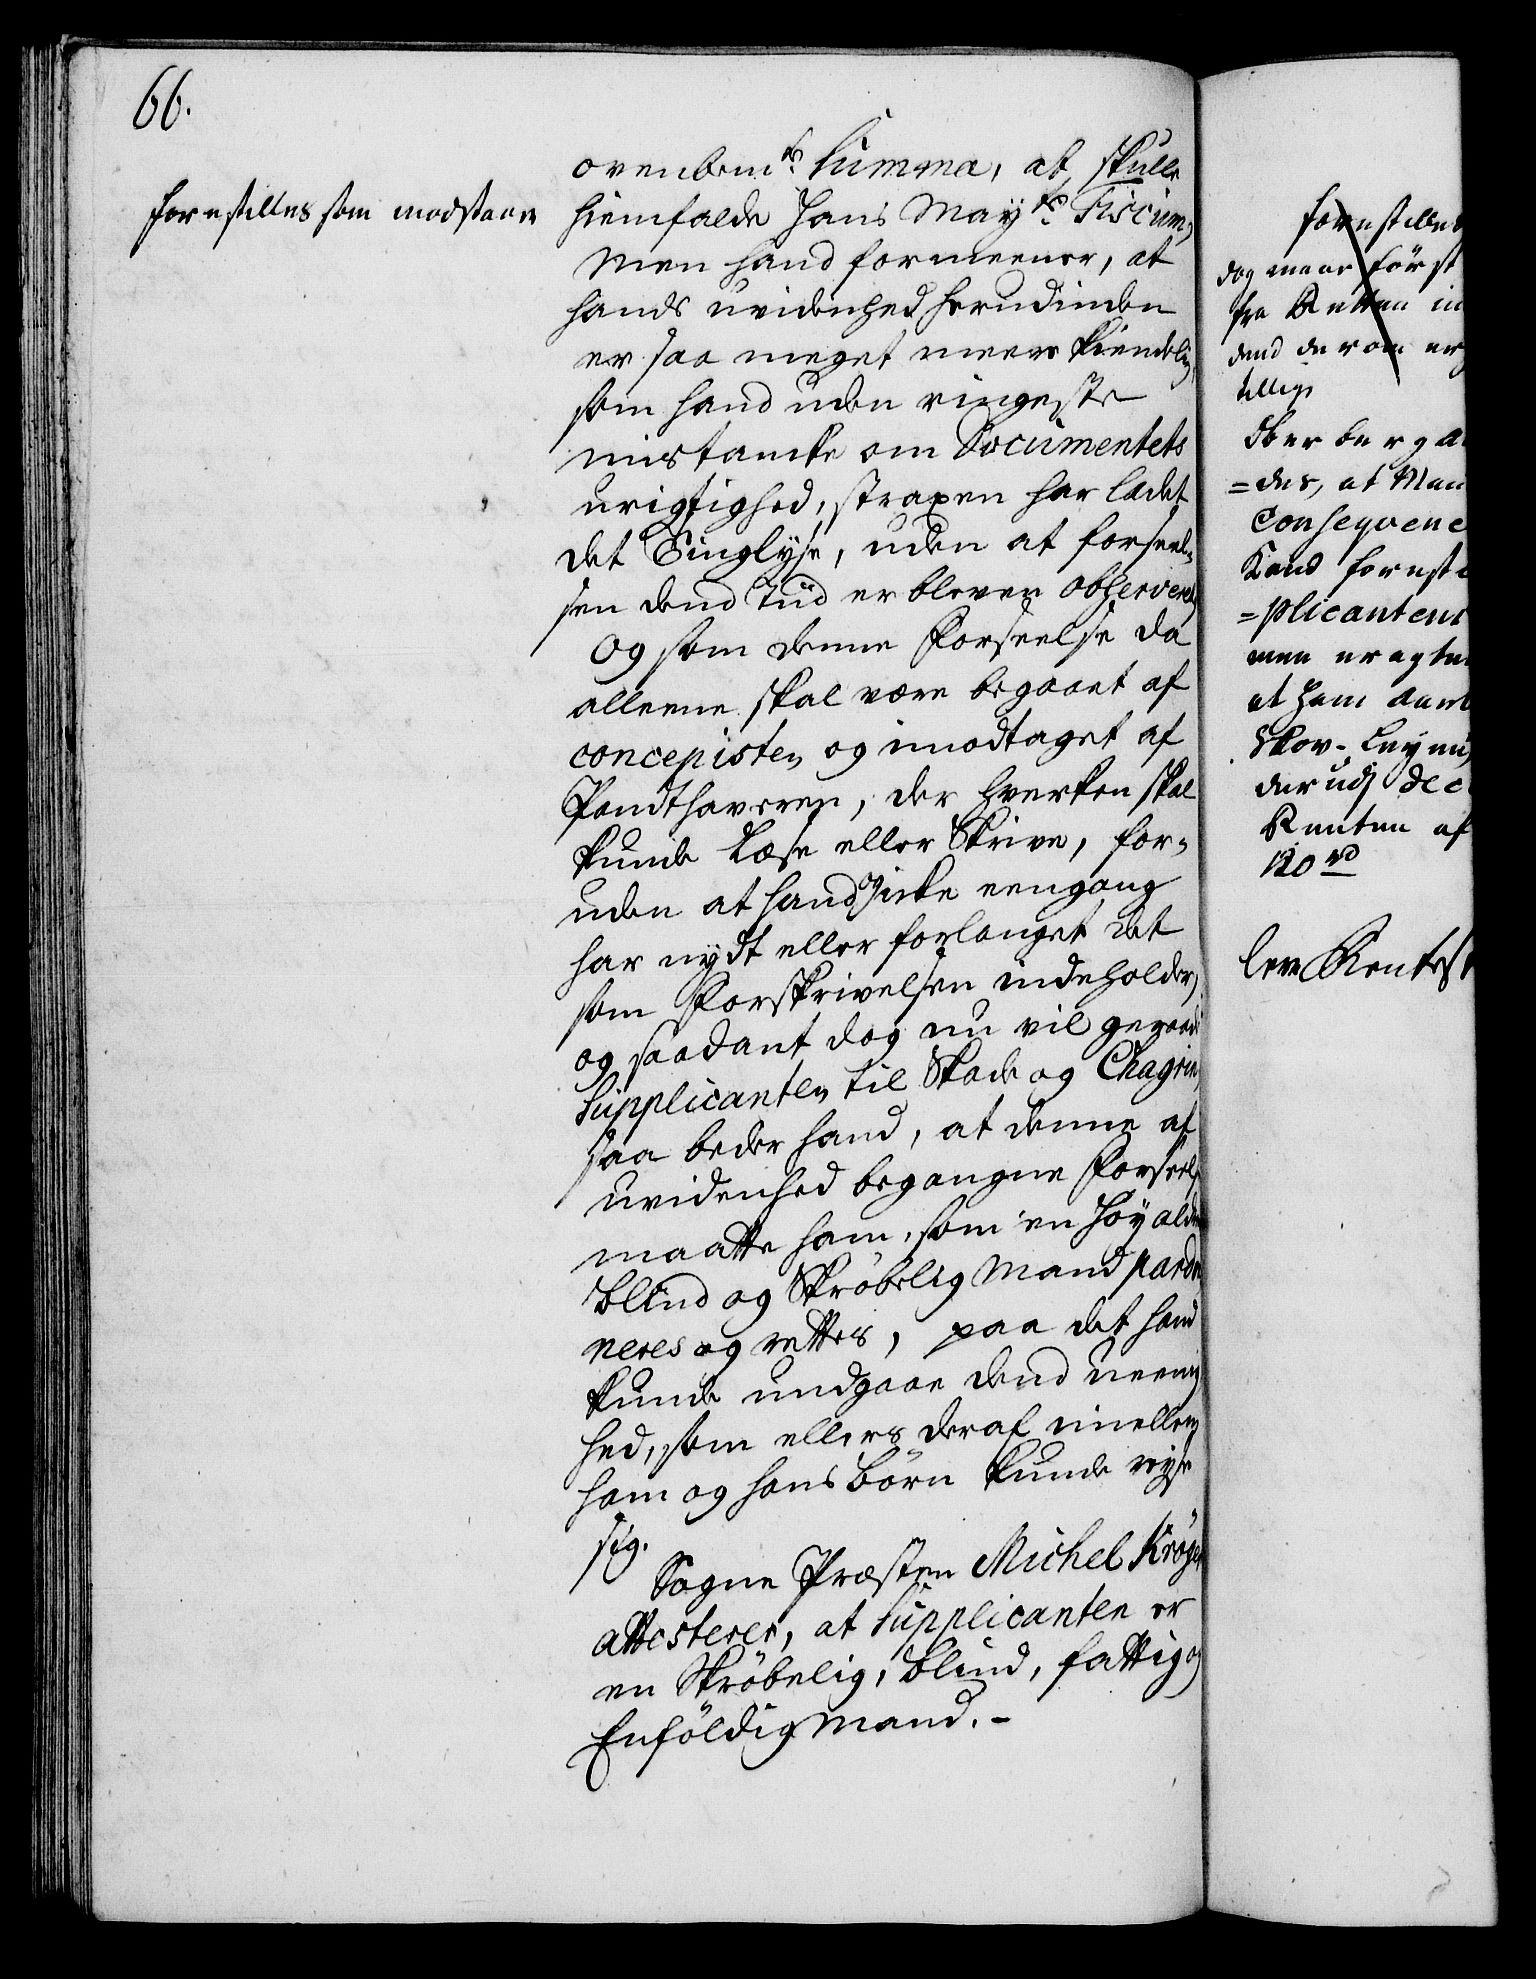 66.
forestilles som modstaaer
ovenbemte Summa, at skulle
hiemfalde Hans Mayts Fiscum,
Men hand formeener, at
hands uvidenhed herudinden
er saa meget meere kiendelig,
som hand uden ringeste
mistancke om Documentets
urigtighed, straxen har ladet
det Tinglyse, uden at forseel-
sen dend Tiid er bleven observeret,
Og som denne Forseelse da
alleene skal være begaaet af
concepisten og imodtaget af
Pandthaveren, der hverken skal
kunde Læse eller Skrive, for-
uden at hand icke eengang
har nydt eller forlanget det
som Forskrivelsen indeholder,
og saadant dog nu vil geraade
Supplicanten til Skade og Chagrin,
saa beder hand, at denne af
uvidenhed begangne Forseelse
maatte ham, som en Høy alder
blind og Skrøbelig Mand pardo
neres og rettes, paa det hand
kunde undgaae dend ueenig
hed, som ellers deraf imellem
ham og hans Børn kunde reyse
sig.
Sogne Præsten Michel Krøyer
attesterer, at Supplicanten er
en Skrøbelig, blind, fattig og
Enfoldig Mand. -
forestilles
dog maae først
fra Retten in
dend derom er
tillige
Ober berg A
=des, at Man
Conseqvenc
Kand foreste
=plicantens
men eragte
at ham aar
Skov-
derudi dec
Renten af
120 rd
lev Rentes